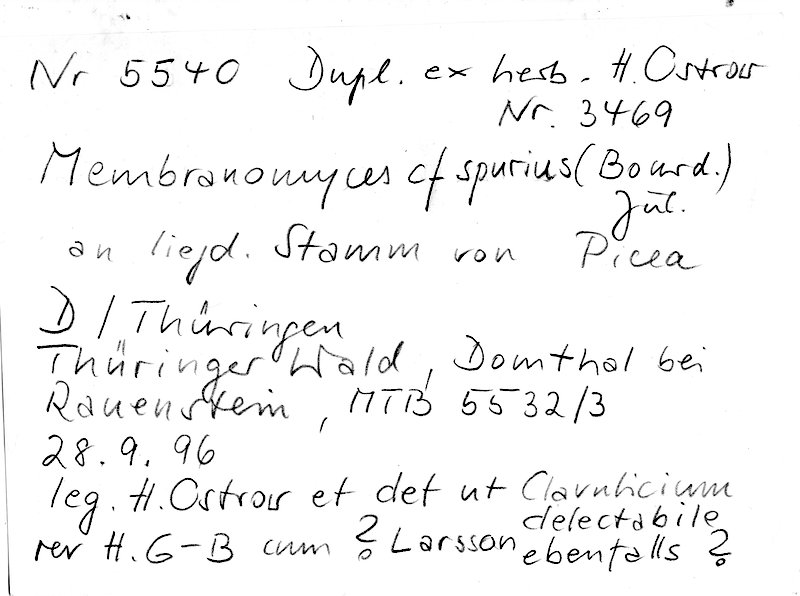 Nr 5540 Dupl. ex herb. H. Ostrow
Nr. 3469
Membranomyces cf spurius (Bourd.)
Jül.
an liegd. Stamm von Picea
D / Thüringen
Thüringer Wald, Domthal bei
Rauenstein, MTB 5532/3
28.9.96
leg. H. Ostrow et det ut Clavulicium
delectabile
rev H. G-B cum ? Larsson ebenfalls ?